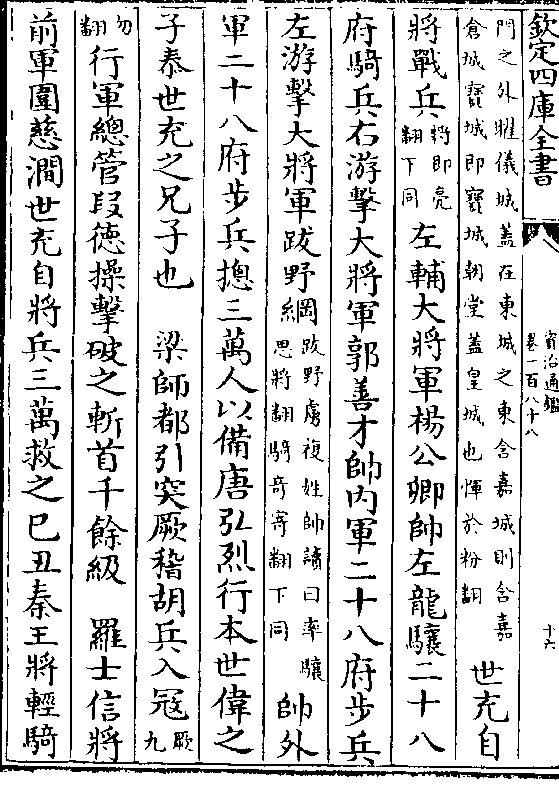 欽定四庫全書
資治通鑑
卷一百八十八
十六
門之外曜儀城蓋在東城之東含嘉城則含嘉
倉城寶城即寶城朝堂蓋皇城也惲於粉翻
世充自
將戰兵
將即亮
翻下同
左輔大將軍楊公卿帥左龍驤二十八
府騎兵右游擊大將軍郭善才帥内軍二十八府步兵
左游擊大將軍跋野綱
跋野虜複姓帥讀曰率驤
思將翻騎奇寄翻下同
帥外
軍二十八府步兵摠三萬人以備唐弘烈行本世偉之
子泰世充之兄子也　梁師都引突厥稽胡兵入冦
厥九
勿翻
行軍總管段德操擊破之斬首千餘級　羅士信將
前軍圍慈澗世充自將兵三萬救之己丑秦王將輕騎